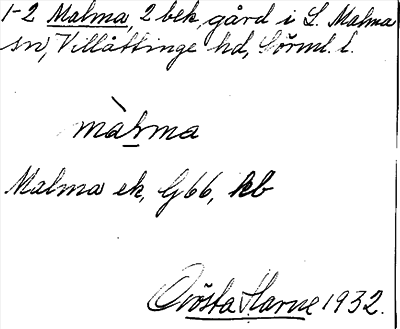 1-2 Malma, 2 bek, gård i L. Malma
sn, Villåttinge hd, Sörml. l.
màlma
Malma ek, G66, kb
Harne 1932.